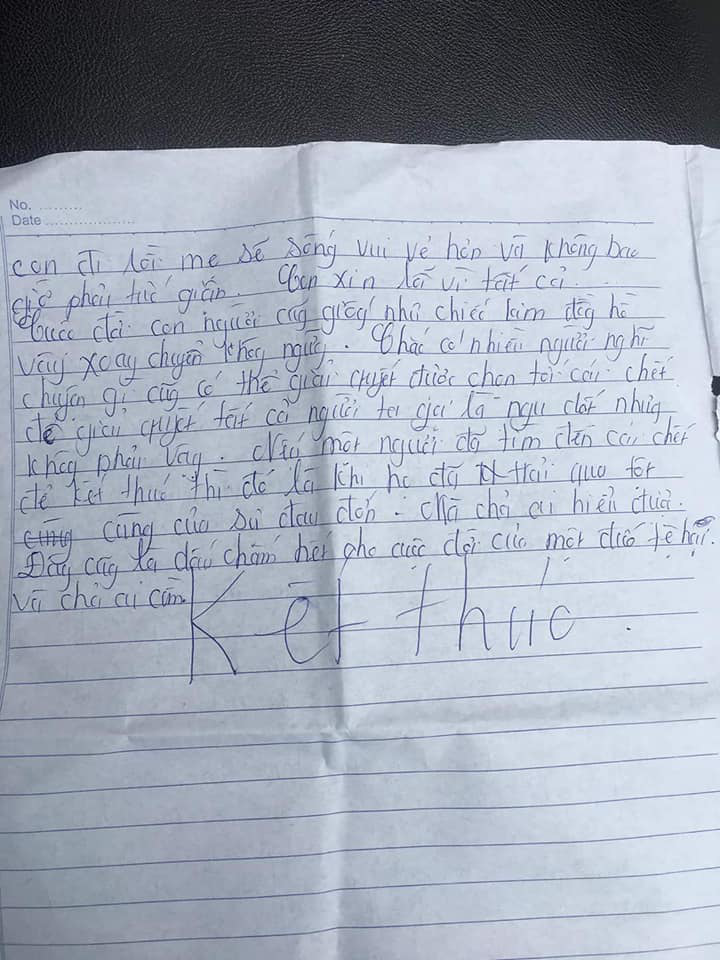 No. ..........
Date ..................
con đi rồi mẹ sẽ sống vui vẻ hơn và không bao
giờ phải tức giận. Con xin lỗi vì tất cả.
Cuộc đời con người cũg giống như chiếc kim đồg hồ
vậy xoay chuyển khôg ngừg. Chắc có nhiều người nghĩ
chuyện gì cũg có thể giải quyết được chọn tới cái chết
để giải quyết tất cả người ta gọi là ngu dốt nhưng
khôg phải vậy. một người đã tìm đến cái chết
để kết thúc thì đó là khi họ đã trải qua tột
cùng của sự đau đớn. Mà chả ai hiểu được.
Đây cũg là dấu chấm hết cho cuộc đời của một đứa tệ hại.
và chả ai cần
Kết thúc.